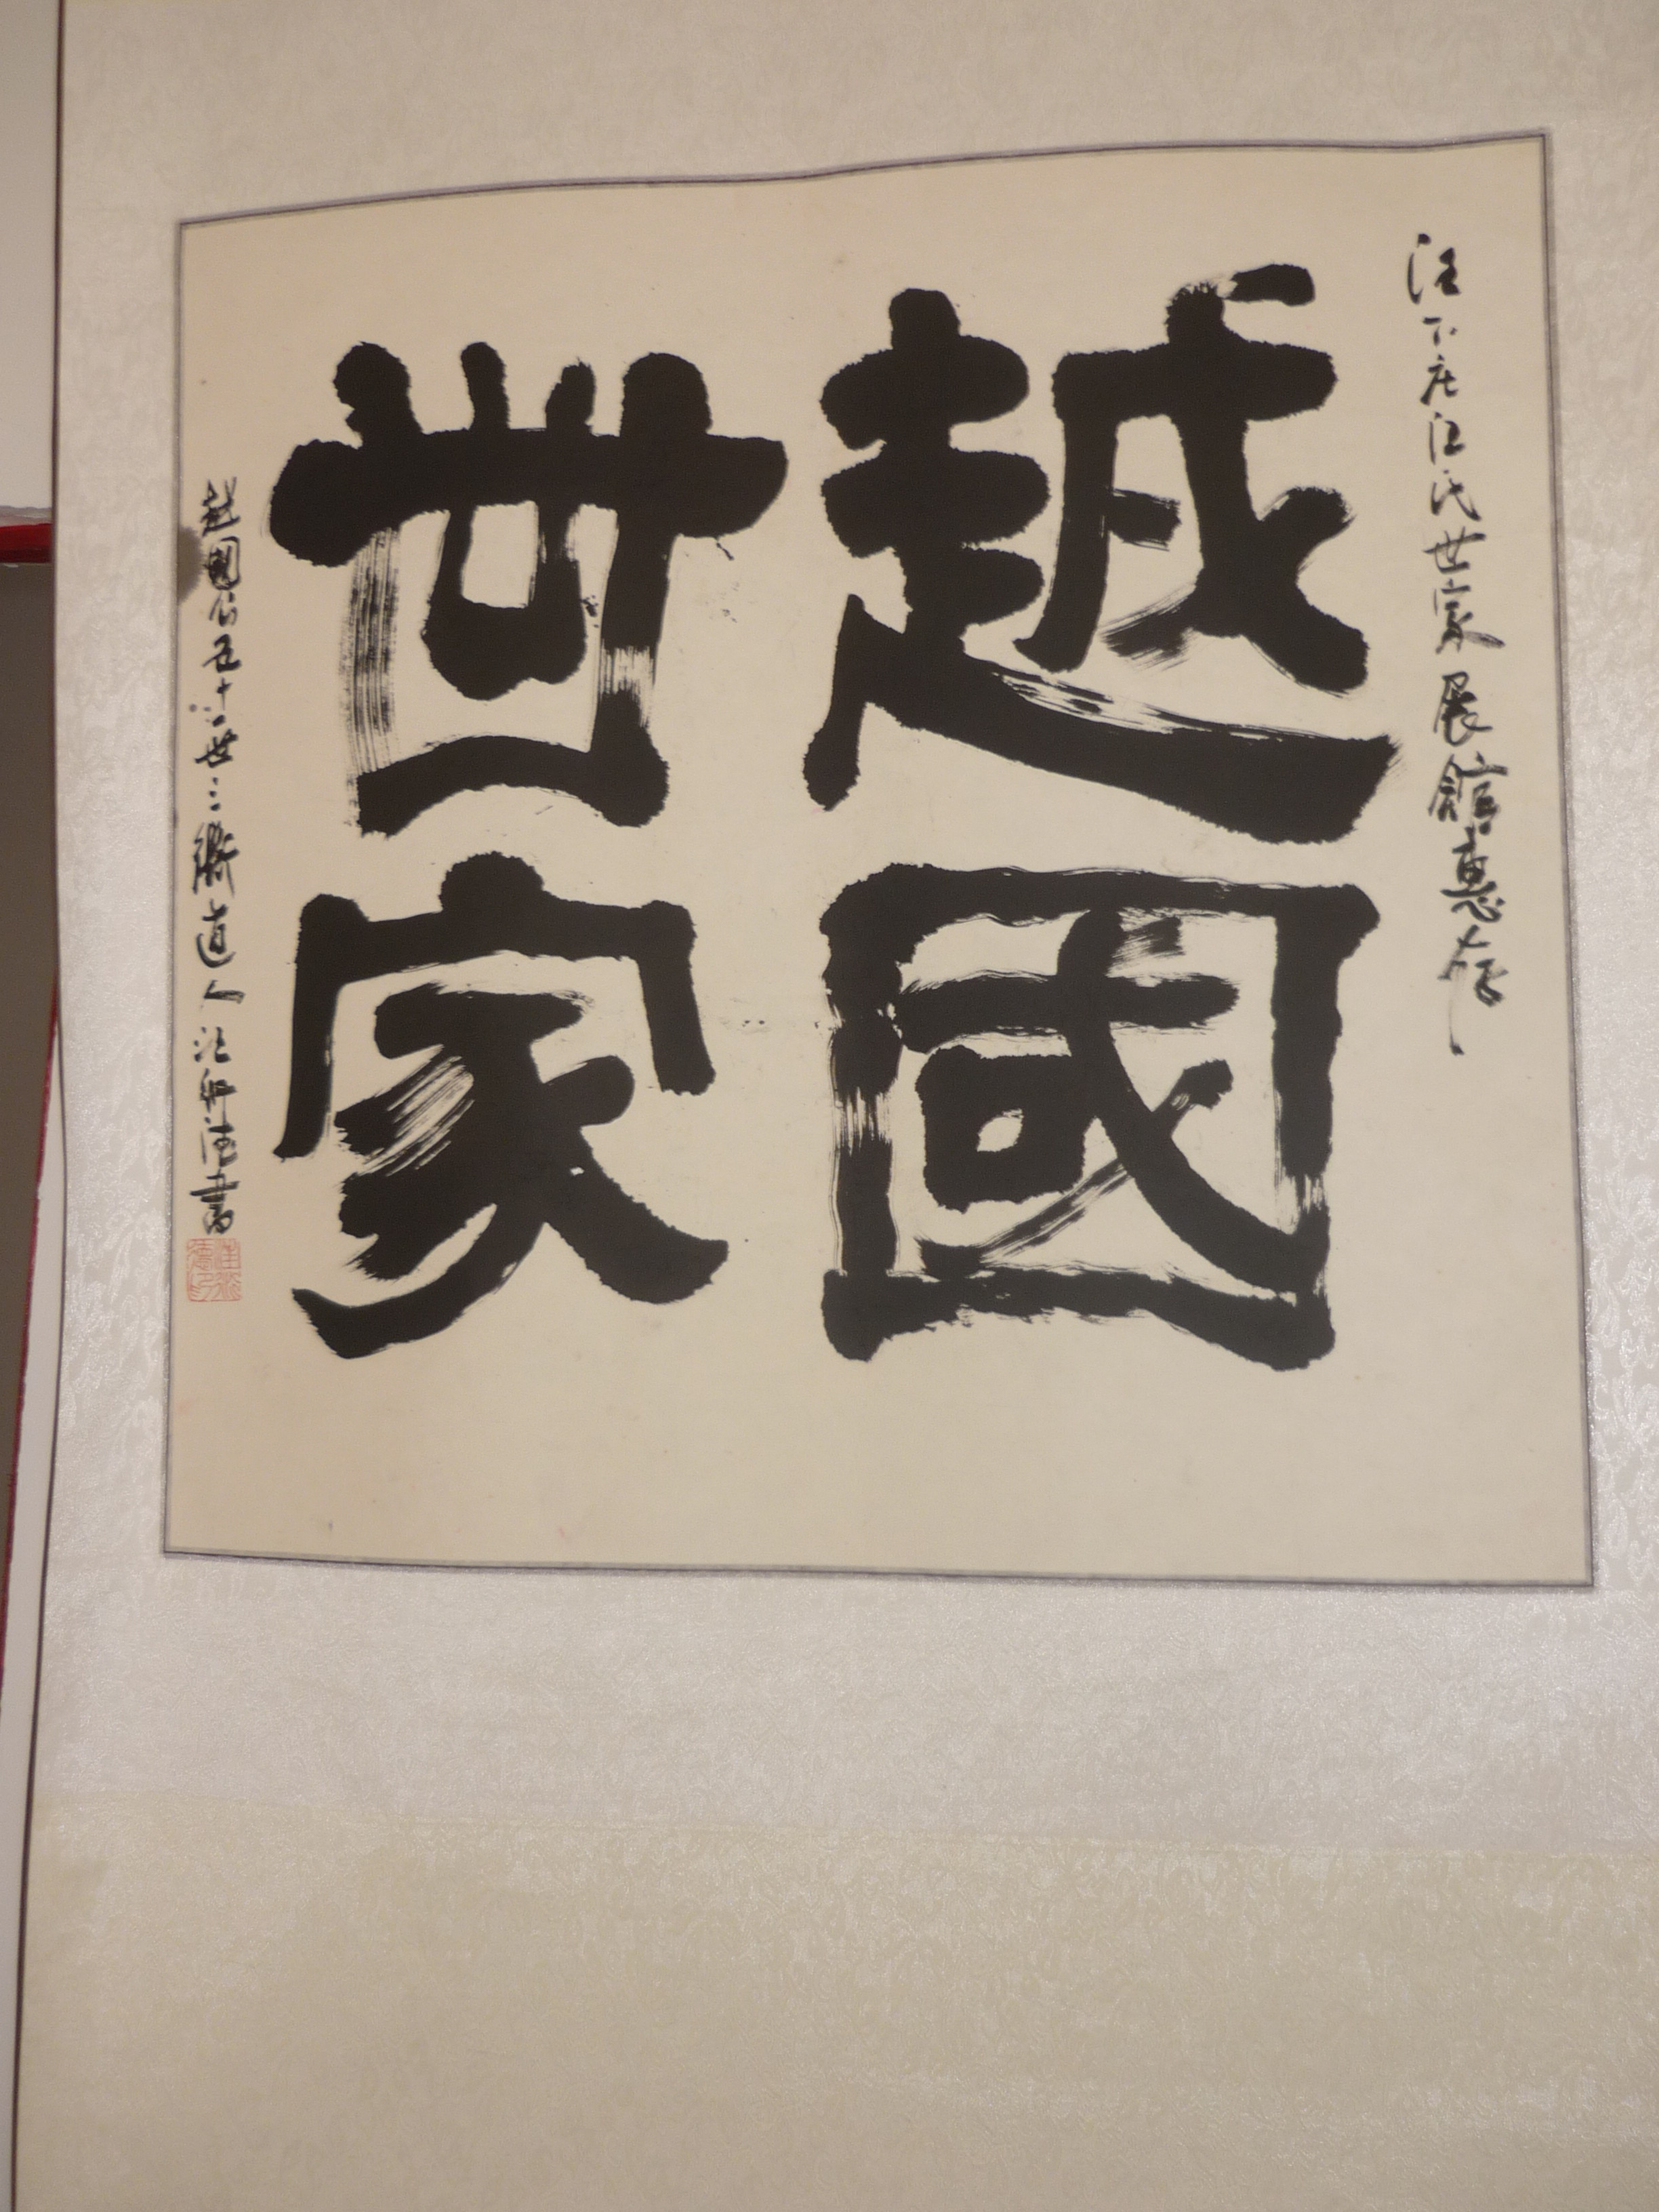 汪下庄汪氏世家展館惠存
越國
世家
越國公五十一世三衢道人汪舜德書